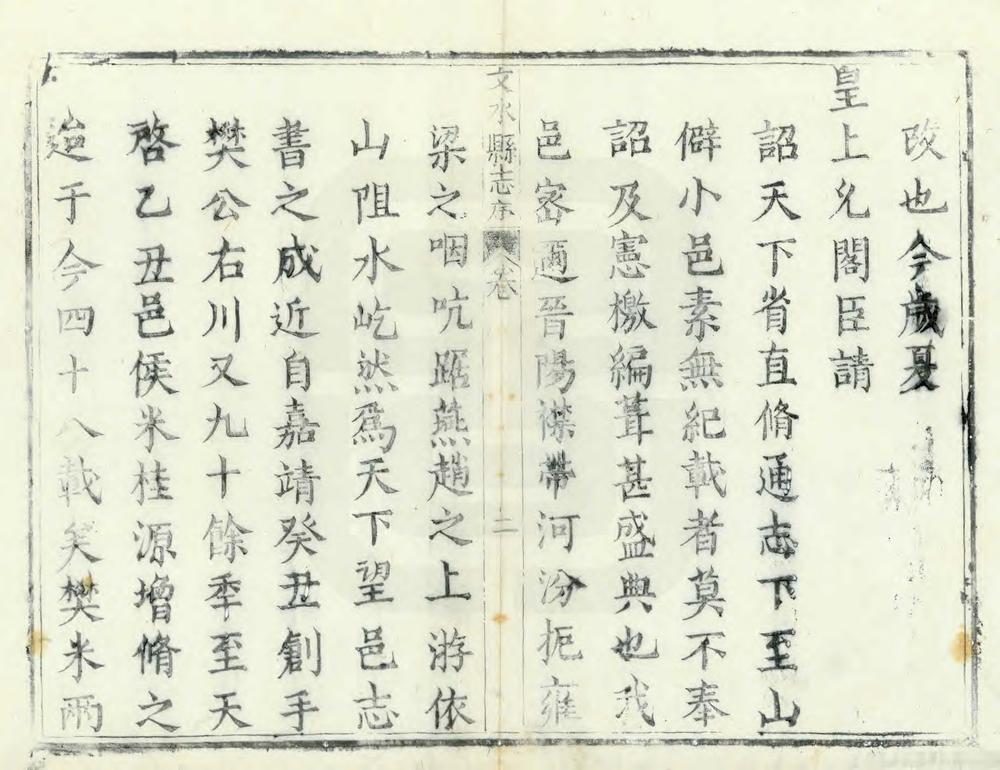 改也今歲夏
皇上允閣臣請
詔天下省直脩通志下至山
僻小邑素無紀載者莫不奉
詔及憲檄編葺甚盛典也我
邑密邇晉陽襟帶河汾扼雍
文水縣志序 卷 二
梁之咽吭踞燕趙之上游依
山阻水屹然爲天下望邑志
書之成近自嘉靖癸丑創手
樊公右川又九十餘年至天
啓乙丑邑侯米桂源增脩之
迨于今四十八載矣樊米兩